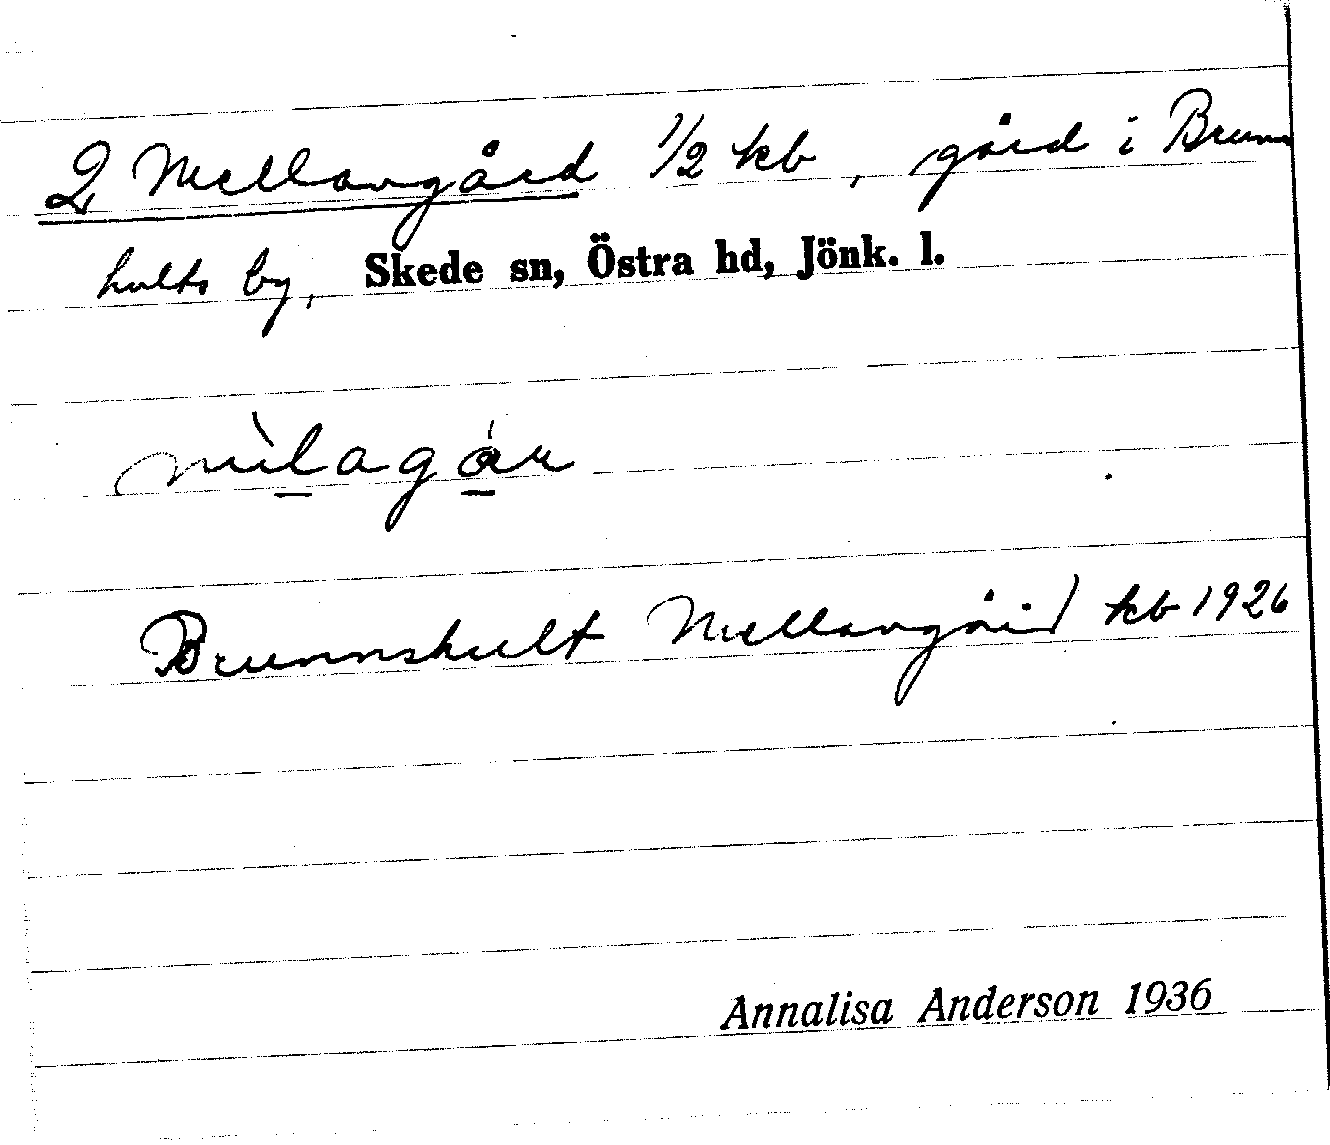 2 Mellangård 1/2 kb, gård i Brunns
hults by, Skede sn, Östra hd, Jönk. l.
Brunnshult Mellangård kb 1926
Annalisa Anderson 1936